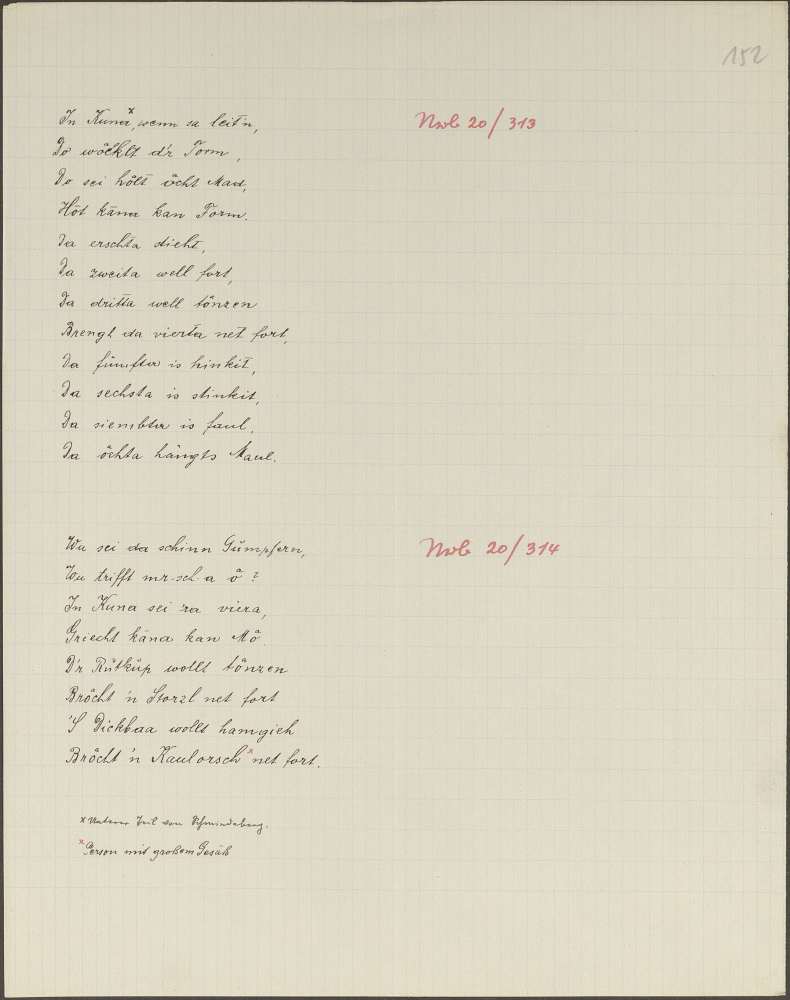 152
In Kunax, wenn sa leit'n,
Nwb 20/313
Do wöcklt d'r Torm,
Do sei hölt öcht Mad,
Höt kāna kan Form.
Da erschta stieht,
Da zweita well fort,
Da dritta well tönzen
Brengt da vierta net fort,
Da fümfta is hinkit,
Da sechsta is stinkit,
Da siembta is faul,
Da öchta hängts Maul.
Wu sei da schinn Gümpfern,
Nwb 20/314
Wu trifft mr sch a å?
In Kuna sei ra viera,
Griecht kāna kan Må.
D'r Rütküp wollt tönzen
Bröcht 'n Storzl net fort
'S Dickbaa wollt hamgieh
Bröcht 'n Kaulorschx net fort.
x Unterer Teil von Schmiedeberg.
x Person mit großem Gesäß